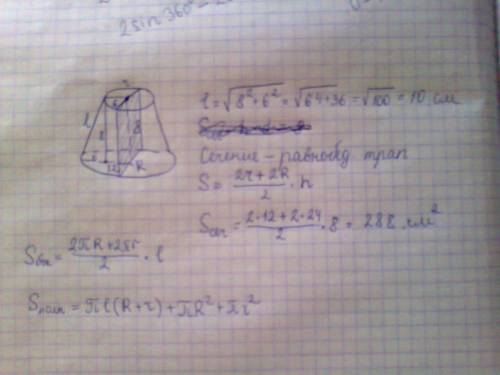 2 sin 360° -
l = √8²+6² = √64+36 = √100 = 10 см
Сечение – равнобед трап
S = (2r + 2R)/2 · h
Sсеч = (2·12 + 2·24)/2 · 8 = 288 см²
Sбок = (2πR + 2πr)/2 · l
Sполн = πl(R + r) + πR² + πr²